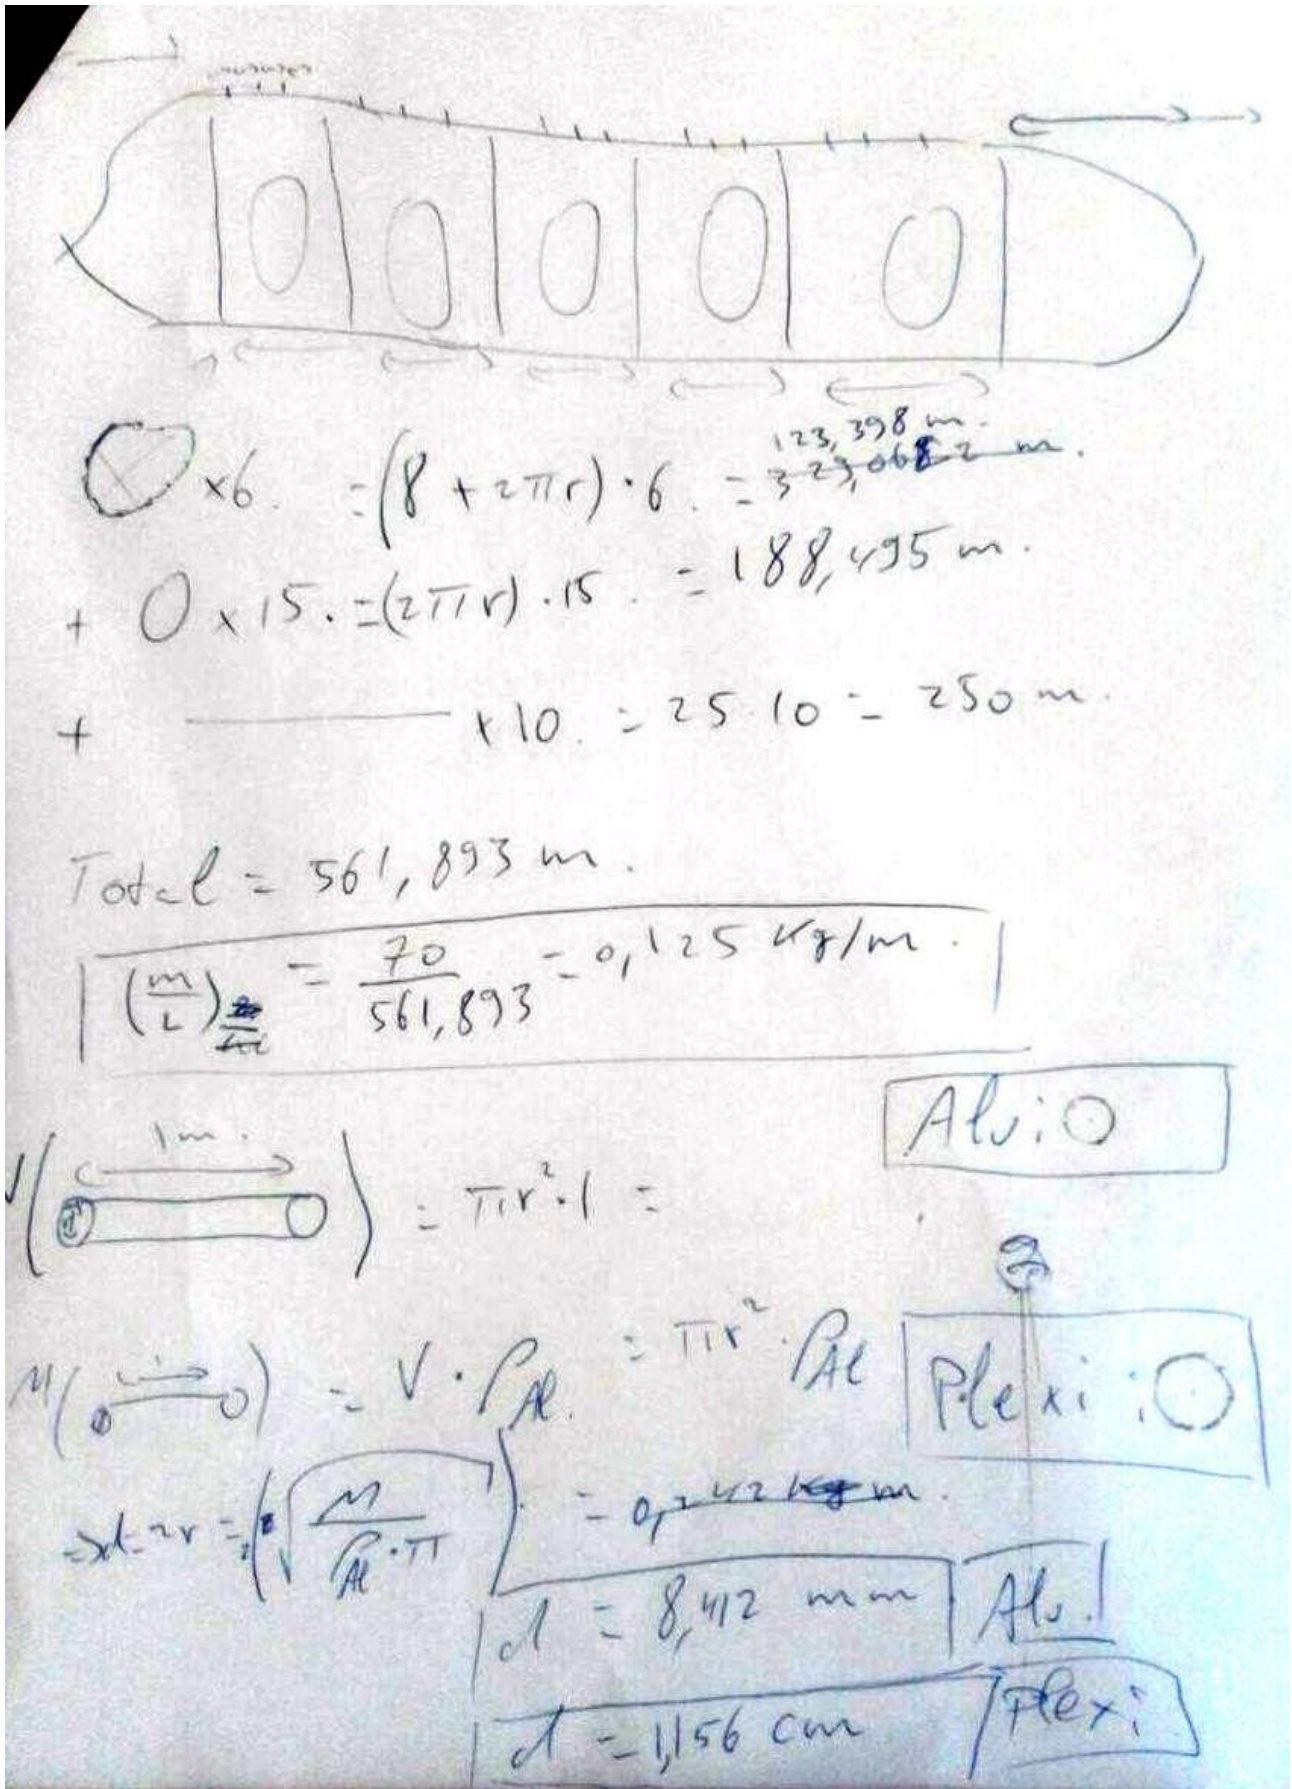 x6. = (8 + 2πr) · 6. = 323,0682 m.
123,398 m.
+ O x 15. = (2πr) · 15. = 188,495 m.
+ ——— x 10. = 25·10 = 250 m.
Total = 561,893 m.
(m/L) = 70/561,893 = 0,125 Kg/m.
Alu: O
1m.
V( ) = πr²·1 =
2
M( ) = V · ρAl. = πr² · ρAl
Plexi: O
=> d = 2r = 2(√(M/(ρAl · π))) = 0,242 Kg m.
d = 8,412 mm Alu.
d = 1,156 cm Plexi